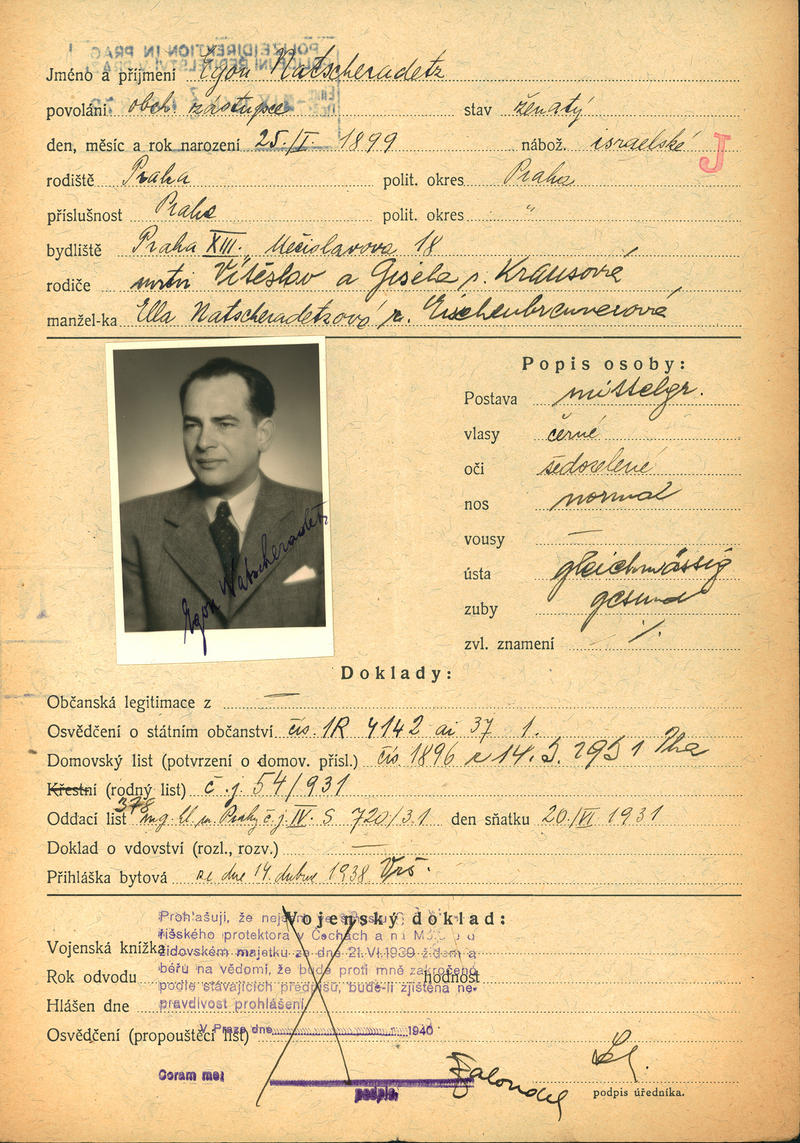 POLIZEIDIREKTION IN PRAG
Jméno a příjmení Egon Natscheradetz
povolání obch. zástupce stav ženatý
den, měsíc a rok narození 25./I. 1899 nábož. israelské J
rodiště Praha polit. okres Praha
příslušnost Praha polit. okres "
bydliště Praha XIII., Mečislavova 18
rodiče mrtvi Vítěslav a Gisela r. Krausová
manžel-ka Ella Natscheradetzová r.
Popis osoby:
Postava mittelgr.
vlasy černé
oči šedozelené
nos normal
vousy —
ústa gleichmässig
zuby gesund
zvl. znamení ·/.
Egon Natscheradetz
Doklady:
Občanská legitimace z —
Osvědčení o státním občanství čís. 1R 4142 ai 37 1.
Domovský list (potvrzení o domov. přísl.) čís 1896 z 14. 5. 1931 Pha
Křestní (rodný list) č. j 54/931
Oddací list 378 č. j. IV. S 720/31 den sňatku 20./VI 1931
Doklad o vdovství (rozl., rozv.) —
Přihláška bytová ze dne 14. dubna 1938 Vrš.
Vojenský doklad:
Prohlašuji, že nejsem ve smyslu
říšského protektora v Čechách a na
Vojenská knížka
židovském majetku ze dne 21.VI.1939 židem a
béřu na vědomí, že bude proti mně zakročeno
Rok odvodu hodnost
podle stávajících předpisů, bude-li zjištěna ne-
Hlášen dne
pravdivost prohlášení.
V Praze dne 1940
Osvědčení (propouštěcí list)
Coram me:
podpis.
podpis úředníka.